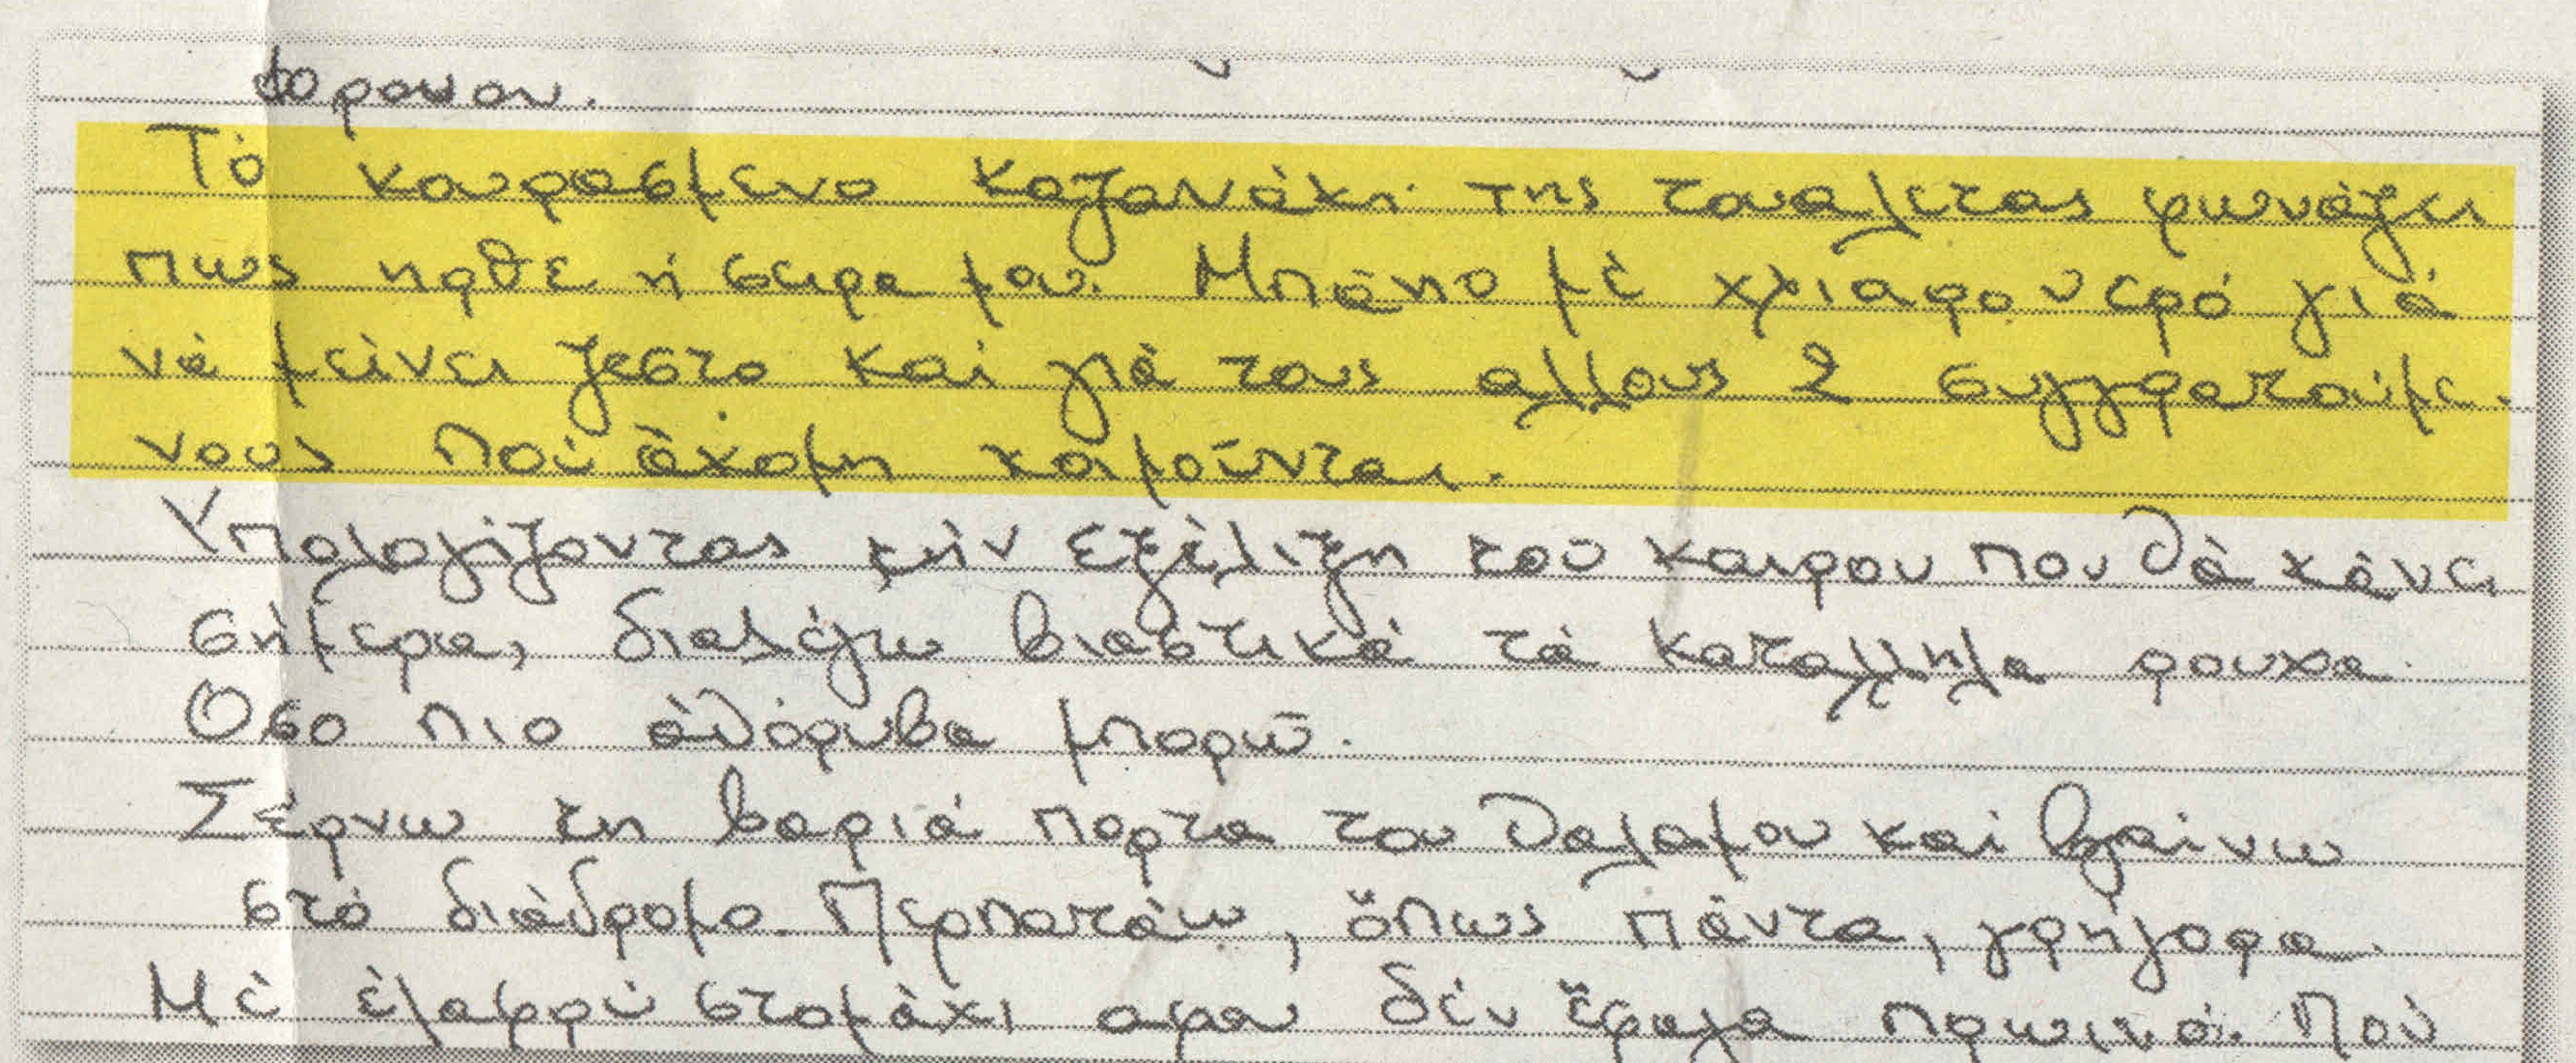 Τό κουρασμενο καζανάκι της τουαλετας φωνάζει
πως ηρθε ή σειρα μου. Μπάνιο μέ χλιαρο νερό γιά
νά μείνει ζεστο καί γιά τους αλλους 2 συγκρατούμε-
νους πού άκομη κοιμούνται.
Υπολογίζοντας τήν εξέλιξη τού καιρου που θά κάνει
σήμερα, διαλέγω βιαστικά τά καταλληλα ρουχα.
Οσο πιο άθόρυβα μπορώ.
Σέρνω τη βαριά πορτα του θαλαμου καί βγαίνω
στό διάδρομο. Περπατάω, ὅπως πάντα, γρήγορα.
Μέ έλαφρύ στομάχι αφου δέν ἔφαγα πρωινό. Πού